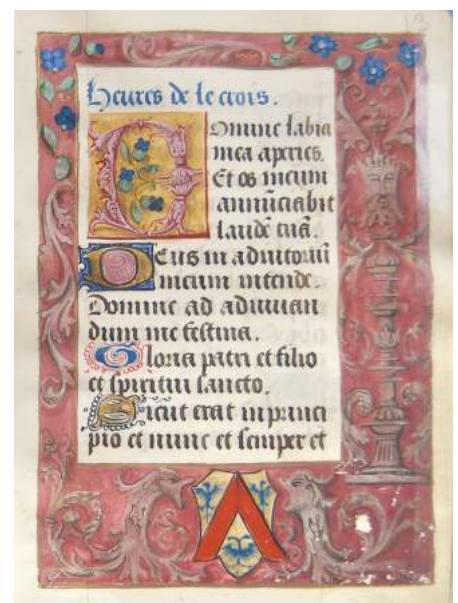 13
Heures de le crois.
Domine labia
mea aperies.
Et os meum
annūciabit
laudē tuā.
Deus in adiutoriū
meum intende.
Domine ad adiuuan
dum me festina.
Gloria patri et filio
et spiritui sancto.
Sicut erat in princi
pio et nunc et semper et